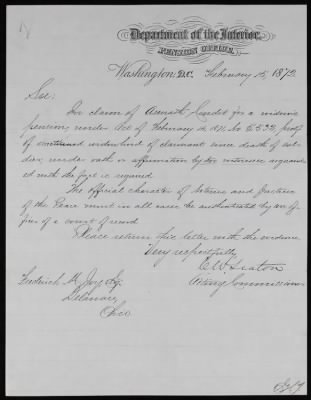 Department of the Interior,
PENSION OFFICE,
Washington, D.C. February 15, 1872
Sir:
In claim of Asenath for a widow's
pension, under Act of February 14, 1871, No. 6532, proof
of continued widowhood of claimant since death of sol-
dier, under oath or affirmation by two witnesses acquaint-
ed with the fact is required
The official character of Notaries and Justices
of the Peace must in all cases be authenticated by
of a court of record
Please return this letter with the evidence
Very respectfully
Acting Commissioner
Frederick M. Joy Esq.
Delaware,
Ohio